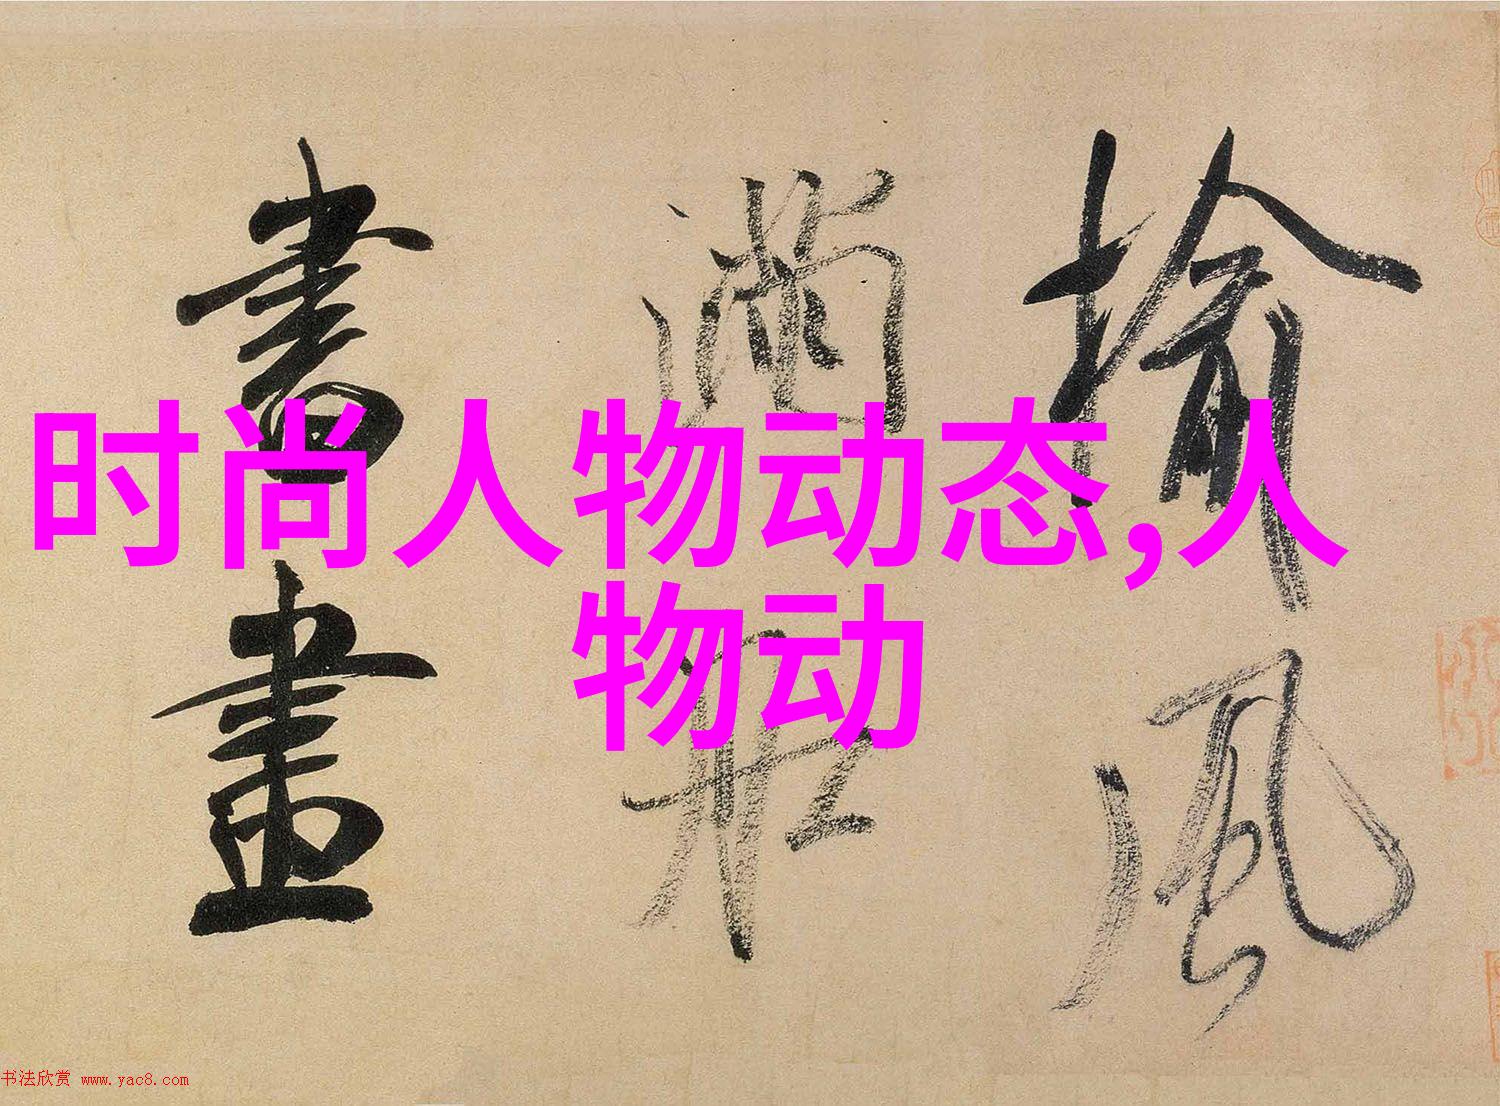 榆風
滿舡
書畫
时尚人物动态,人
物动
书法欣赏 www.yac8.com